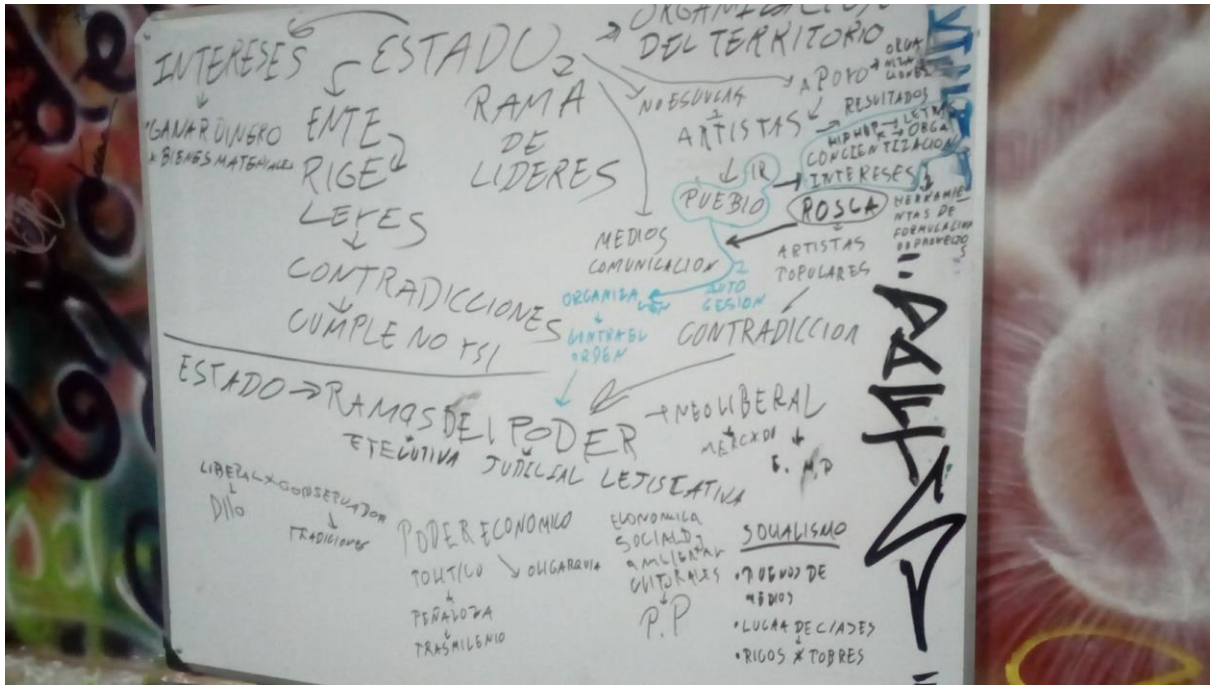 ORGANIZACION
DEL TERRITORIO
INTERESES
ESTADO
GANAR DINERO
BIENES MATERIALES
ENTE
RIGE
LEYES
CONTRADICCIONES
CUMPLE NO Y SI
RAMA
DE
LIDERES
NO ESCUCHAS
ARTISTAS
APOYO
ORGA
NIZA
CIONES
RESULTADOS
HIPHOP → LETRA
→ ORGA
CONCIENTIZACION
IR
INTERESES
PUEBLO
ROSCA
HERRAMIE
NTAS DE
FORMULACION
DE PROYECTOS
MEDIOS
COMUNICACION
ARTISTAS
POPULARES
AUTO
GESION
ORGANIZA
CION
CONTRA EL
ORDEN
CONTRADICCION
ESTADO → RAMAS DEL PODER
EJECUTIVA JUDICIAL LEJISLATIVA
→ NEOLIBERAL
MERCADO
E. M.P
LIBERAL X CONSERVADOR
Dllo
TRADICIONES
PODER ECONOMICO
POLITICO
OLIGARQUIA
PEÑALOZA
TRASMILENIO
ECONOMICA
SOCIALDJ
AMBIENTAL
CULTORALES
P.P
SOCIALISMO
• DUEÑOS DE
MEDIOS
• LUCHA DE CLASES
• RICOS X POBRES